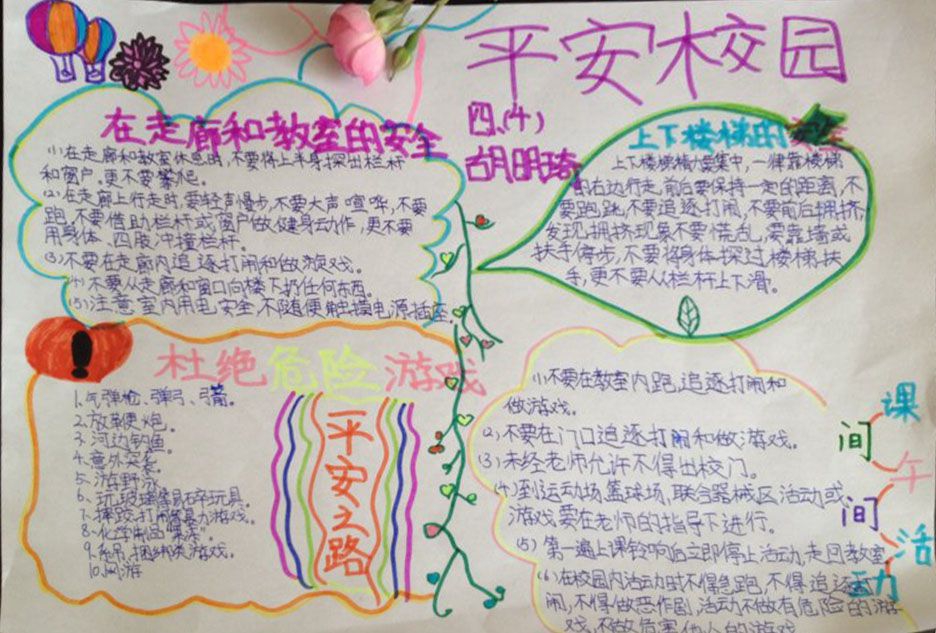 平安校园
四.(4)
胡明琦
在走廊和教室的安全
(1)在走廊和教室休息时,不要将上半身探出栏杆
和窗户,更不要攀爬。
(2)在走廊上行走时,要轻声慢步,不要大声喧哗,不要
跑,不要借助栏杆或窗户做健身动作,更不要
用身体、四肢冲撞栏杆。
(3)不要在走廊内追逐打闹和做游戏。
(4)不要从走廊和窗口向楼下扔任何东西。
(5)注意室内用电安全,不随便触摸电源插座。
上下楼梯的安全
上下楼梯精力要集中,一律靠楼梯
的右边行走,前后要保持一定的距离,不
要跑跳,不要追逐打闹,不要前后拥挤,
发现拥挤现象不要慌乱,要靠墙或
扶手停步,不要将身体探过楼梯扶
手,更不要从栏杆上下滑。
杜绝危险游戏
1.气弹枪、弹弓、弓箭。
2.放鞭炮。
3.河边钓鱼。
4.意外突袭。
5.游野泳
6.玩玻璃等易碎玩具。
7.摔跤、打闹等暴力游戏。
8.化学制品"果冻"。
9.绳捆绑类游戏。
10.网游
平安之路
课间午间活动
(1)不要在教室内跑,追逐打闹和
做游戏。
(2)不要在门口追逐打闹和做游戏。
(3)未经老师允许不得出校门。
(4)到运动场,篮球场,联合器械区活动或
游戏要在老师的指导下进行。
(5)第一遍上课铃响后立即停止活动,走回教室
(6)在校园内活动时不得急跑,不得追逐打
闹,不得做恶作剧,活动不做有危险的游
戏,不做危害他人的游戏